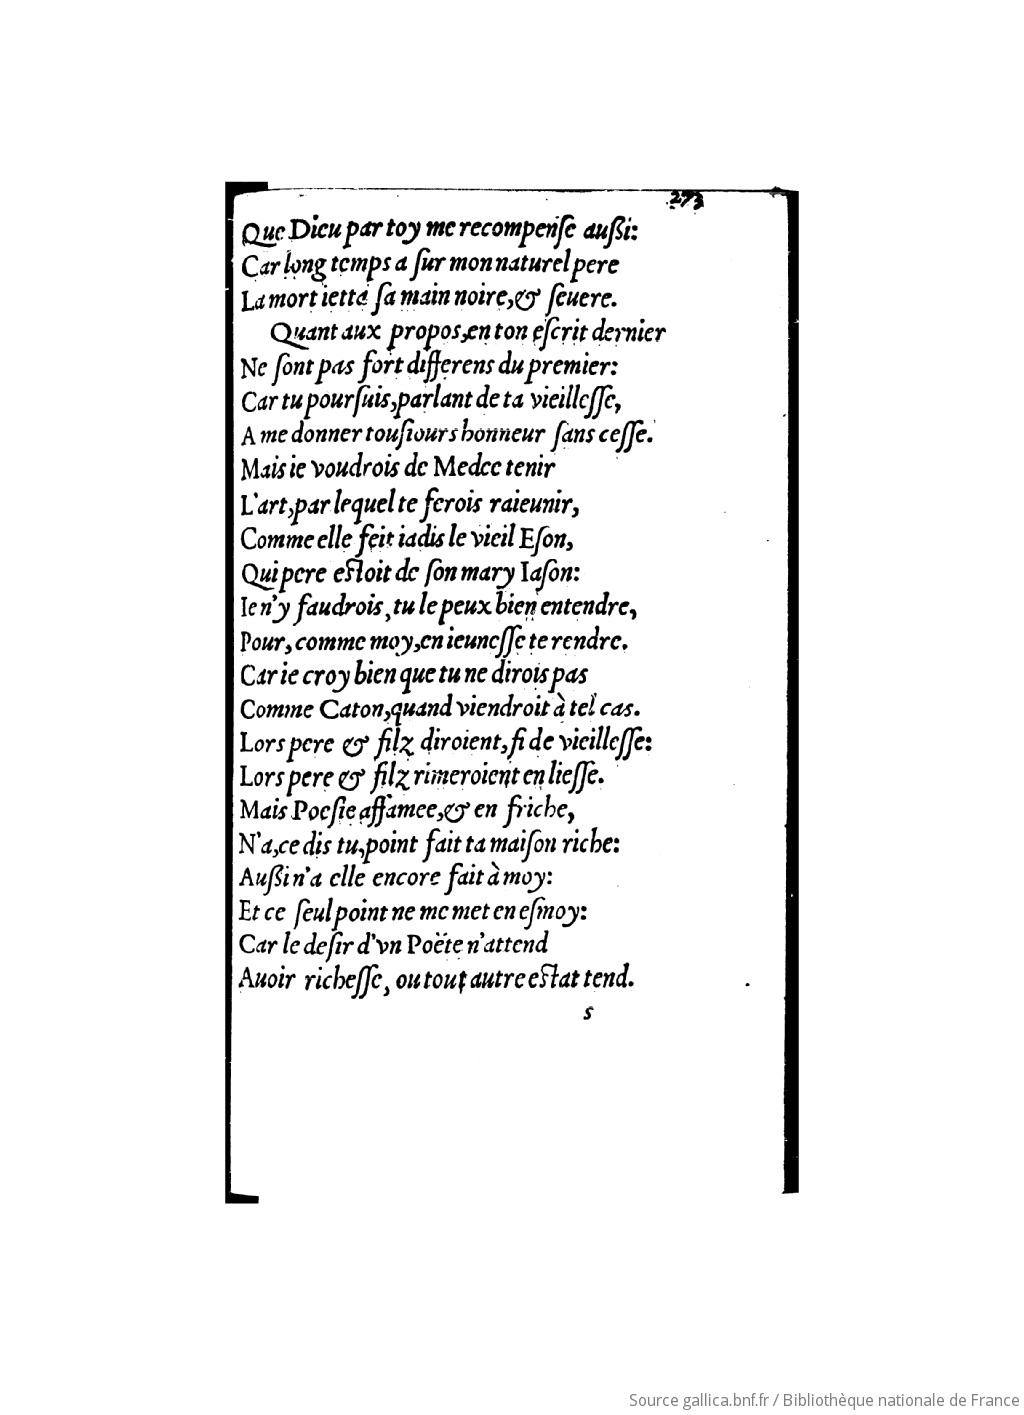 273
Que Dieu par toy me recompenſe außi:
Car long temps a ſur mon naturel pere
La mort ietta ſa main noire, & ſeuere.
Quant aux propos, en ton eſcrit dernier
Ne ſont pas fort differens du premier:
Car tu pourſuis, parlant de ta vieilleſſe,
A me donner touſiours honneur ſans ceſſe.
Mais ie voudrois de Medee tenir
L'art, par lequel te ferois raieunir,
Comme elle feit iadis le vieil Eſon,
Qui pere eſtoit de ſon mary Iaſon:
Ie n'y faudrois, tu le peux bien entendre,
Pour, comme moy, en ieuneſſe te rendre.
Car ie croy bien que tu ne dirois pas
Comme Caton, quand viendroit à tel cas.
Lors pere & filz diroient, fi de vieilleſſe:
Lors pere & filz rimeroient en lieſſe.
Mais Poeſie affamee, & en friche,
N'a, ce dis tu, point fait ta maiſon riche:
Außi n'a elle encore fait à moy:
Et ce ſeul point ne me met en eſmoy:
Car le deſir d'vn Poëte n'attend
Auoir richeſſe, ou tout autre eſtat tend.
s
Source gallica.bnf.fr / Bibliothèque nationale de France